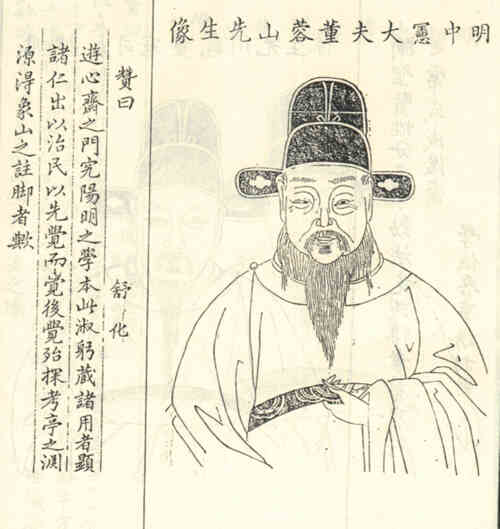 明中憲大夫董蓉山先生像
贊曰
舒化
遊心齋之門究陽明之學本此淑躬藏諸用者顯
諸仁出以治民以先覺而覺後覺殆探考亭之淵
源得象山之註腳者歟